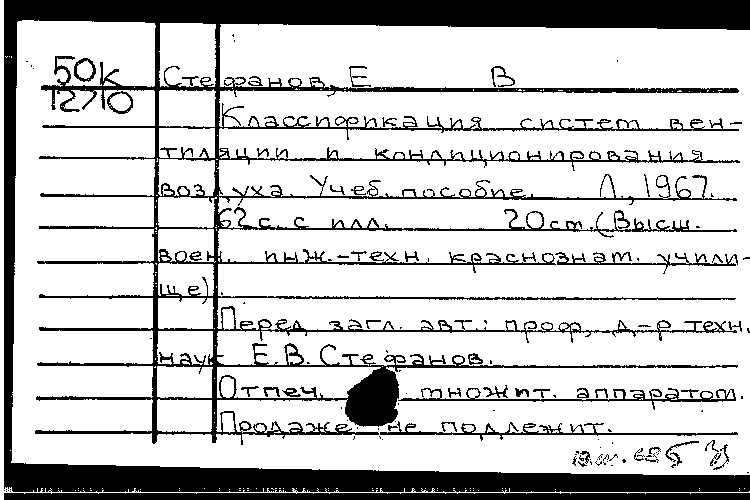 50К
12710
Стефанов, Е В
Классификация систем вен-
тиляции и кондиционирования
воздуха. Учеб. пособие. Л., 1967.
62 с. с илл. 20 см. (Высш.
воен. инж.-техн. краснознам. учили-
ще).
Перед загл. авт.: проф., д-р техн.
наук Е.В. Стефанов.
Отпеч. множит. аппаратом.
Продаже не подлежит.